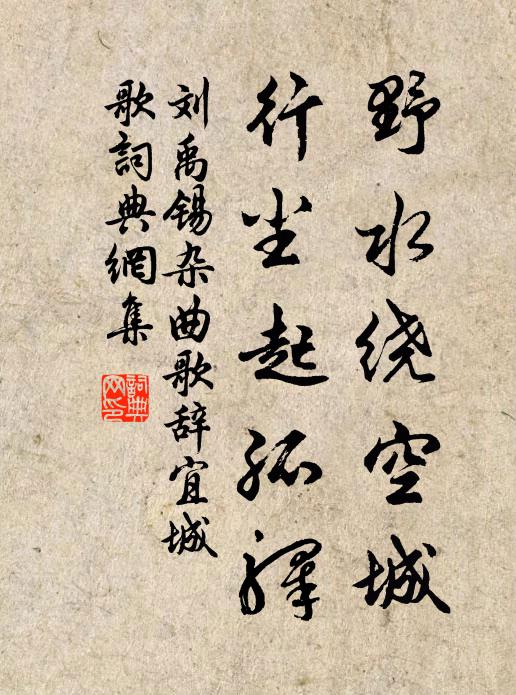 野水绕空城
行尘起孤驿
刘禹锡杂曲歌辞宜城
歌詞典網集
詞典网印